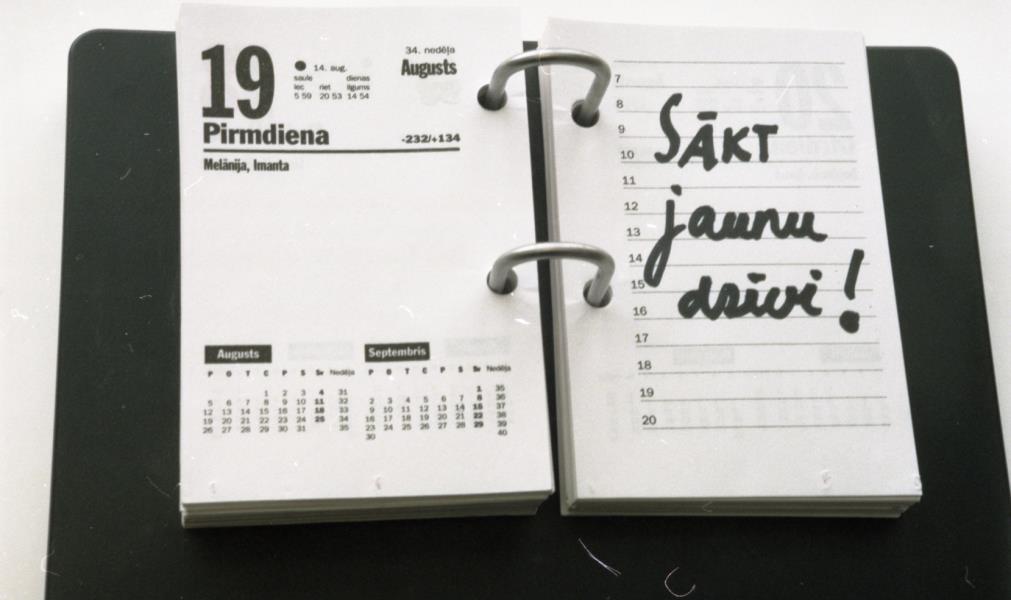 19
● 14. aug.
saule dienas
lec riet ilgums
5 59 20 53 14 54
34. nedēļa
Augusts
Pirmdiena
-232/+134
Melānija, Imanta
Augusts
P O T C P S Sv Nedēļa
1 2 3 4 31
5 6 7 8 9 10 11 32
12 13 14 15 16 17 18 33
19 20 21 22 23 24 25 34
26 27 28 29 30 31 35
Septembris
P O T C P S Sv Nedēļa
1 35
2 3 4 5 6 7 8 36
9 10 11 12 13 14 15 37
16 17 18 19 20 21 22 38
23 24 25 26 27 28 29 39
30 40
7
8
9
10
11
12
13
14
15
16
17
18
19
20
SĀKT
jaunu
dzīvi!